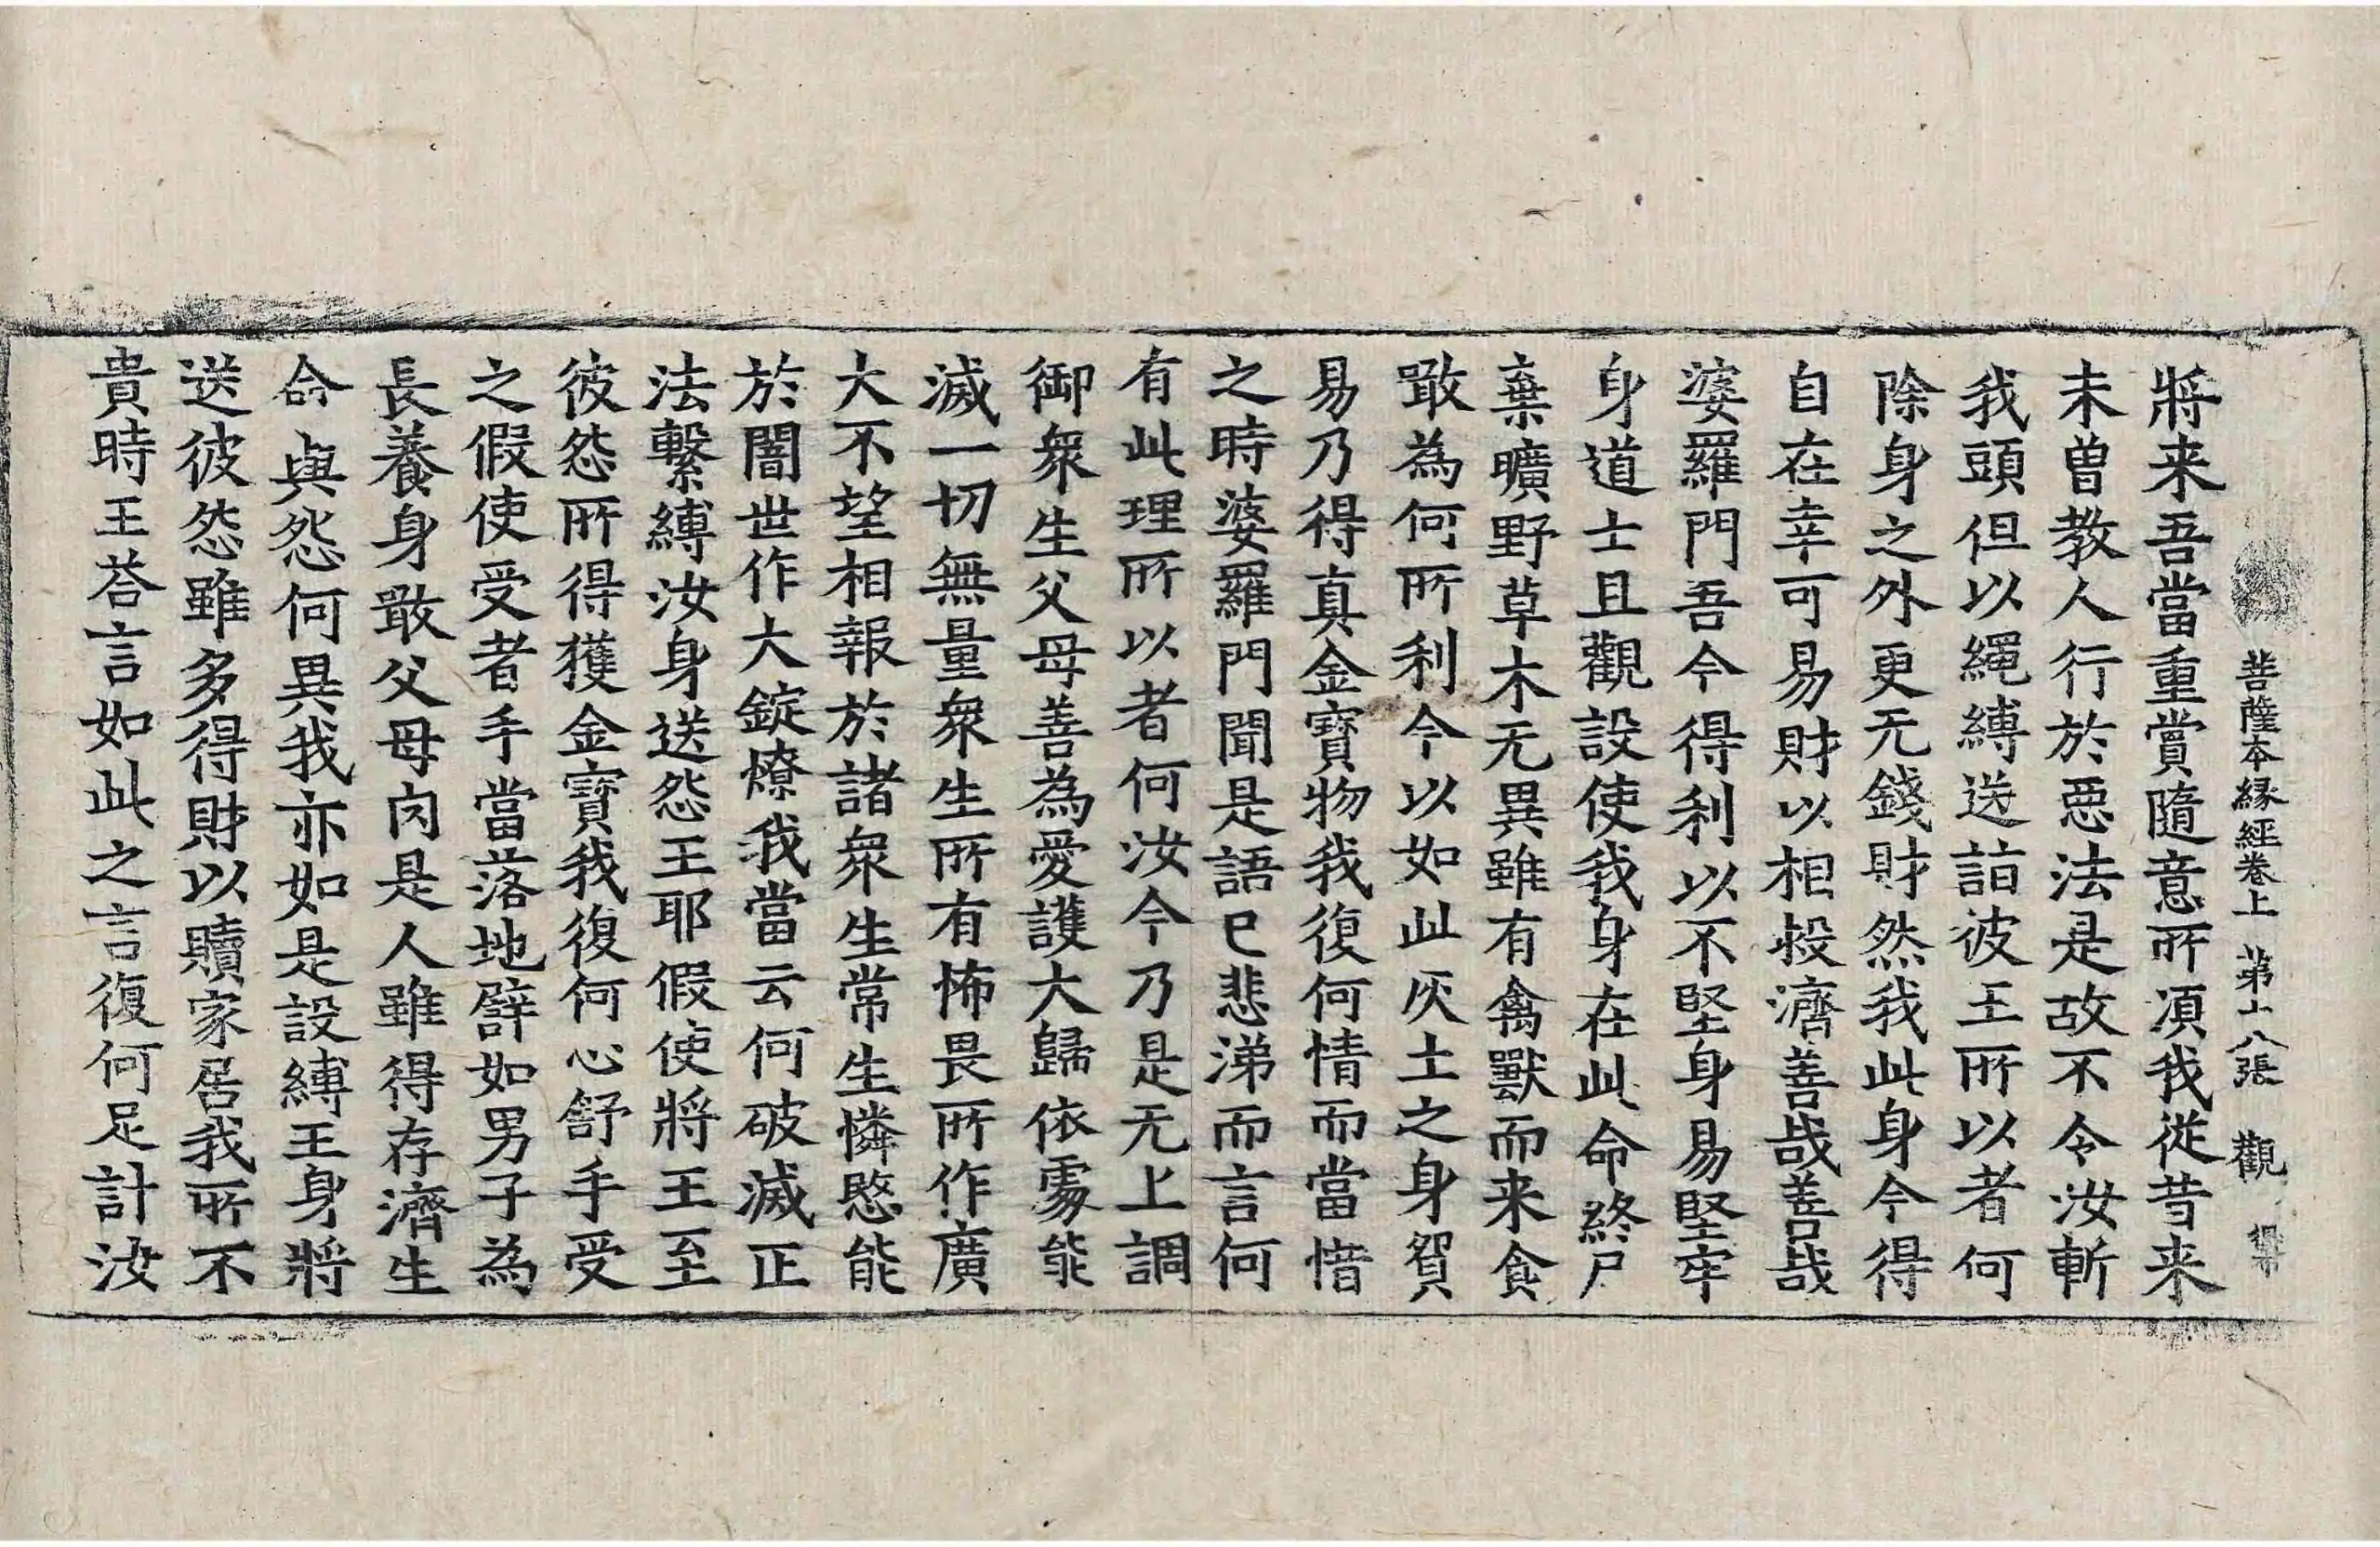 菩薩本緣經卷上 第十八張 觀
將来吾當重賞隨意所湏我從昔来
未曾教人行於惡法是故不令汝斬
我頭但以繩縛送詣彼王所以者何
除身之外更无錢財然我此身今得
自在幸可易財以相投濟善㢤善㢤
婆羅門吾今得利以不堅身易堅牢
身道士且觀設使我身在此命終尸
棄曠野草木无異雖有禽獸而来食
噉為何所利今以如此灰土之身貿
易乃得真金寶物我復何情而當惜
之時婆羅門聞是語已悲涕而言何
有此理所以者何汝今乃是无上調
御衆生父母善為愛護大歸依處能
滅一切無量衆生所有怖畏所作廣
大不望相報於諸衆生常生憐愍能
於闇世作大錠燎我當云何破滅正
法繫縛汝身送怨王耶假使將王至
彼怨所得獲金寶我復何心舒手受
之假使受者手當落地譬如男子為
長養身噉父母肉是人雖得存濟生
命與怨何異我亦如是設縛王身將
送彼怨雖多得財以贖家居我所不
貴時王荅言如此之言復何足計汝